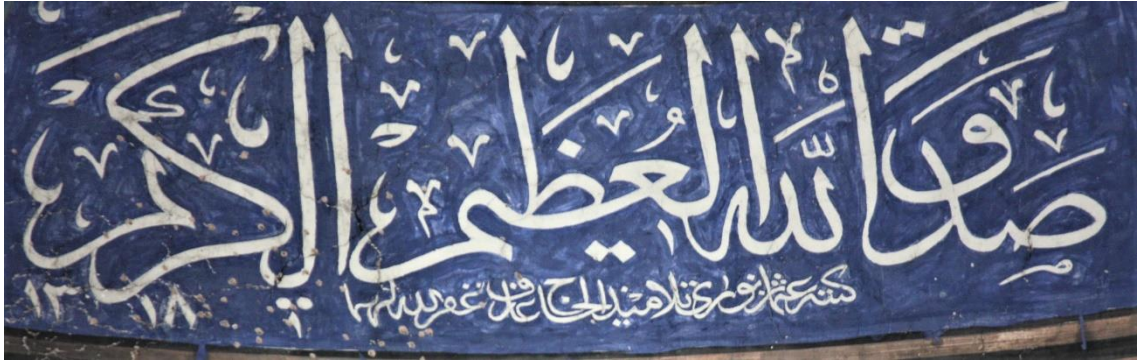 صدق الله العظيم الكريم
كتبه عثمان نوري تلاميذ الحاج غفر الله لهما
١٣١٨